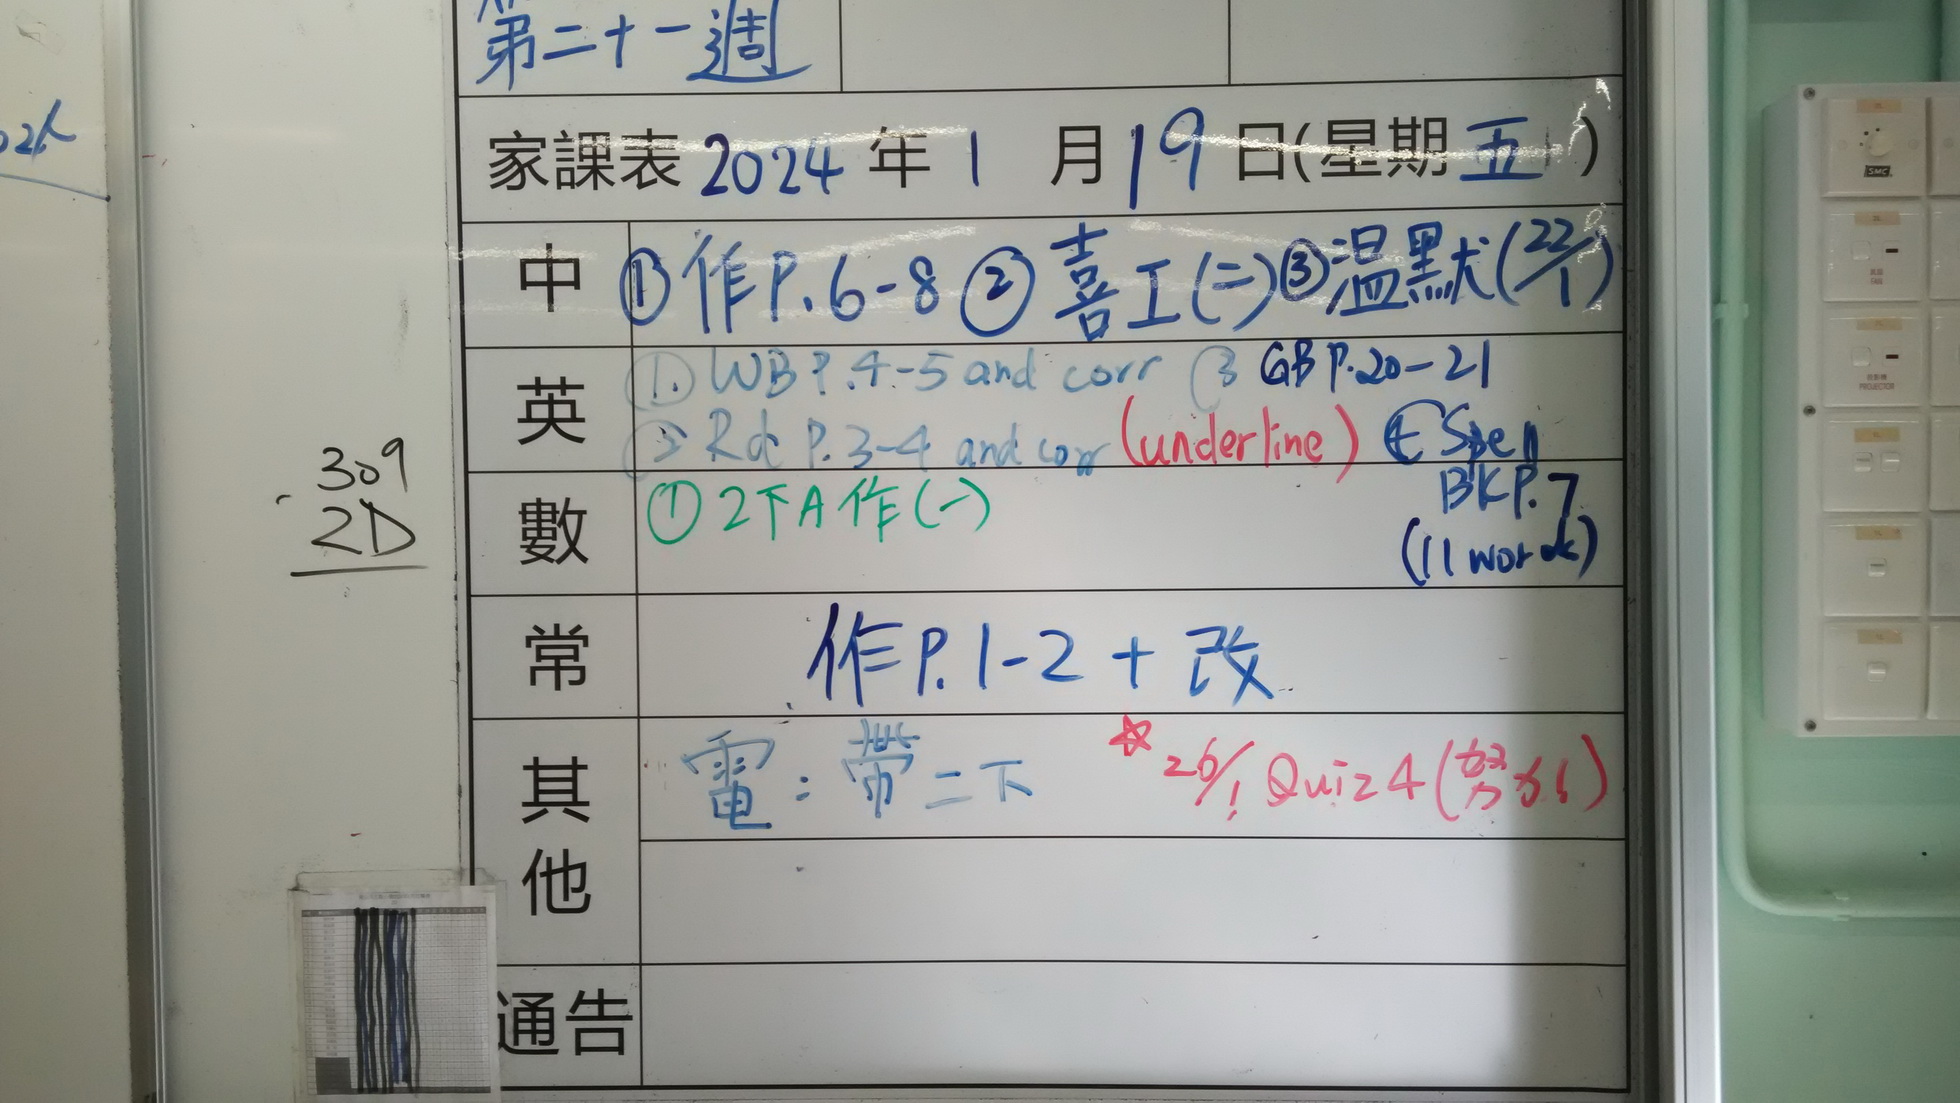 第二十一週
家課表 2024 年 1 月 19 日(星期五)
中 ①作P.6-8 ②喜工(二) ③溫默(22/1)
英 ①. WB P.4-5 and corr ③ GB P.20-21
② Rd P.3-4 and corr (underline) ④ Spell
BK P.7
(11 words)
數 ① 2下A 作(一)
常 作P.1-2 + 改
其他 電:帶二下 ☆ 26/1 Quiz 4
通告
309
2D
SMC
FAN
PROJECTOR